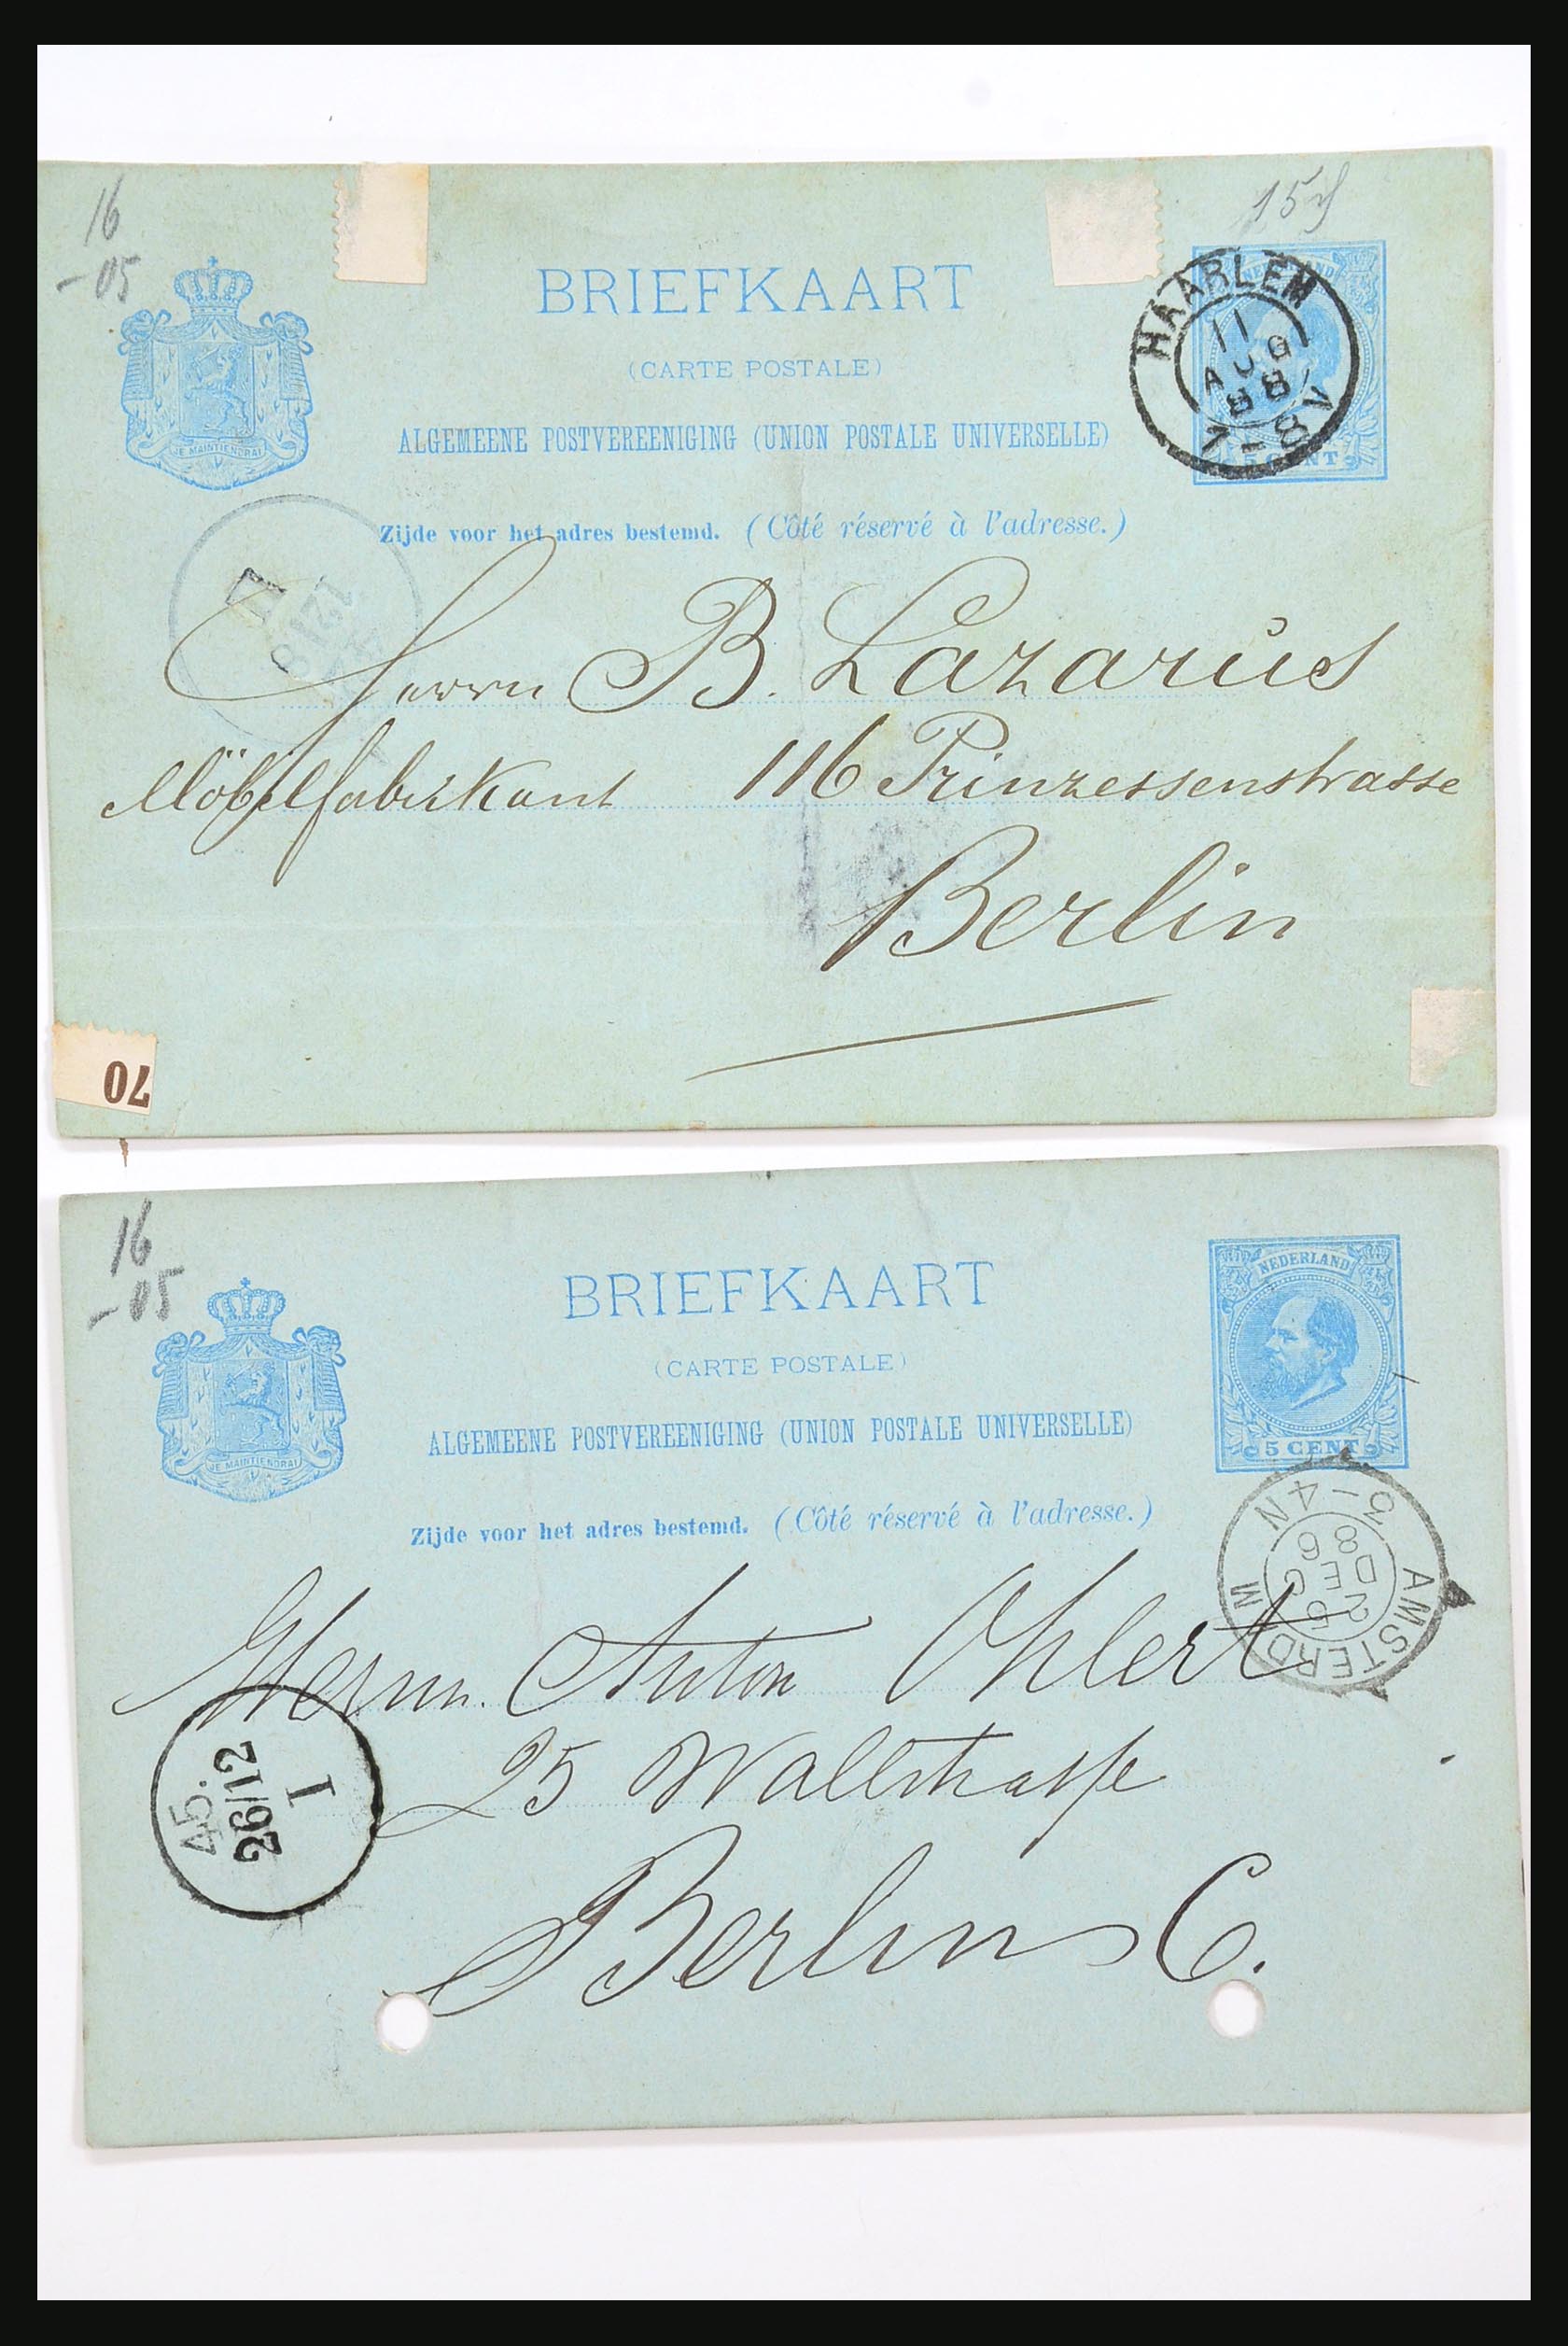 16
-05
15
BRIEFKAART
(CARTE POSTALE)
ALGEMEENE POSTVEREENIGING (UNION POSTALE UNIVERSELLE)
Zijde voor het adres bestemd. (Côté réservé à l'adresse.)
JE MAINTIENDRAI
NEDERLAND
5 CENT
HAARLEM
11
AUG
88
7-8V
12 8
Herrn B. Lazarus
Möbelfabrikant 116 Prinzessenstrasse
Berlin
70
16
-05
BRIEFKAART
(CARTE POSTALE)
ALGEMEENE POSTVEREENIGING (UNION POSTALE UNIVERSELLE)
Zijde voor het adres bestemd. (Côté réservé à l'adresse.)
JE MAINTIENDRAI
NEDERLAND
5 CENT
AMSTERDAM
25
DEC
86
3-4N
Herrn. Anton Ohlert
25 Wallstrasse
Berlin C.
I
26/12
45.